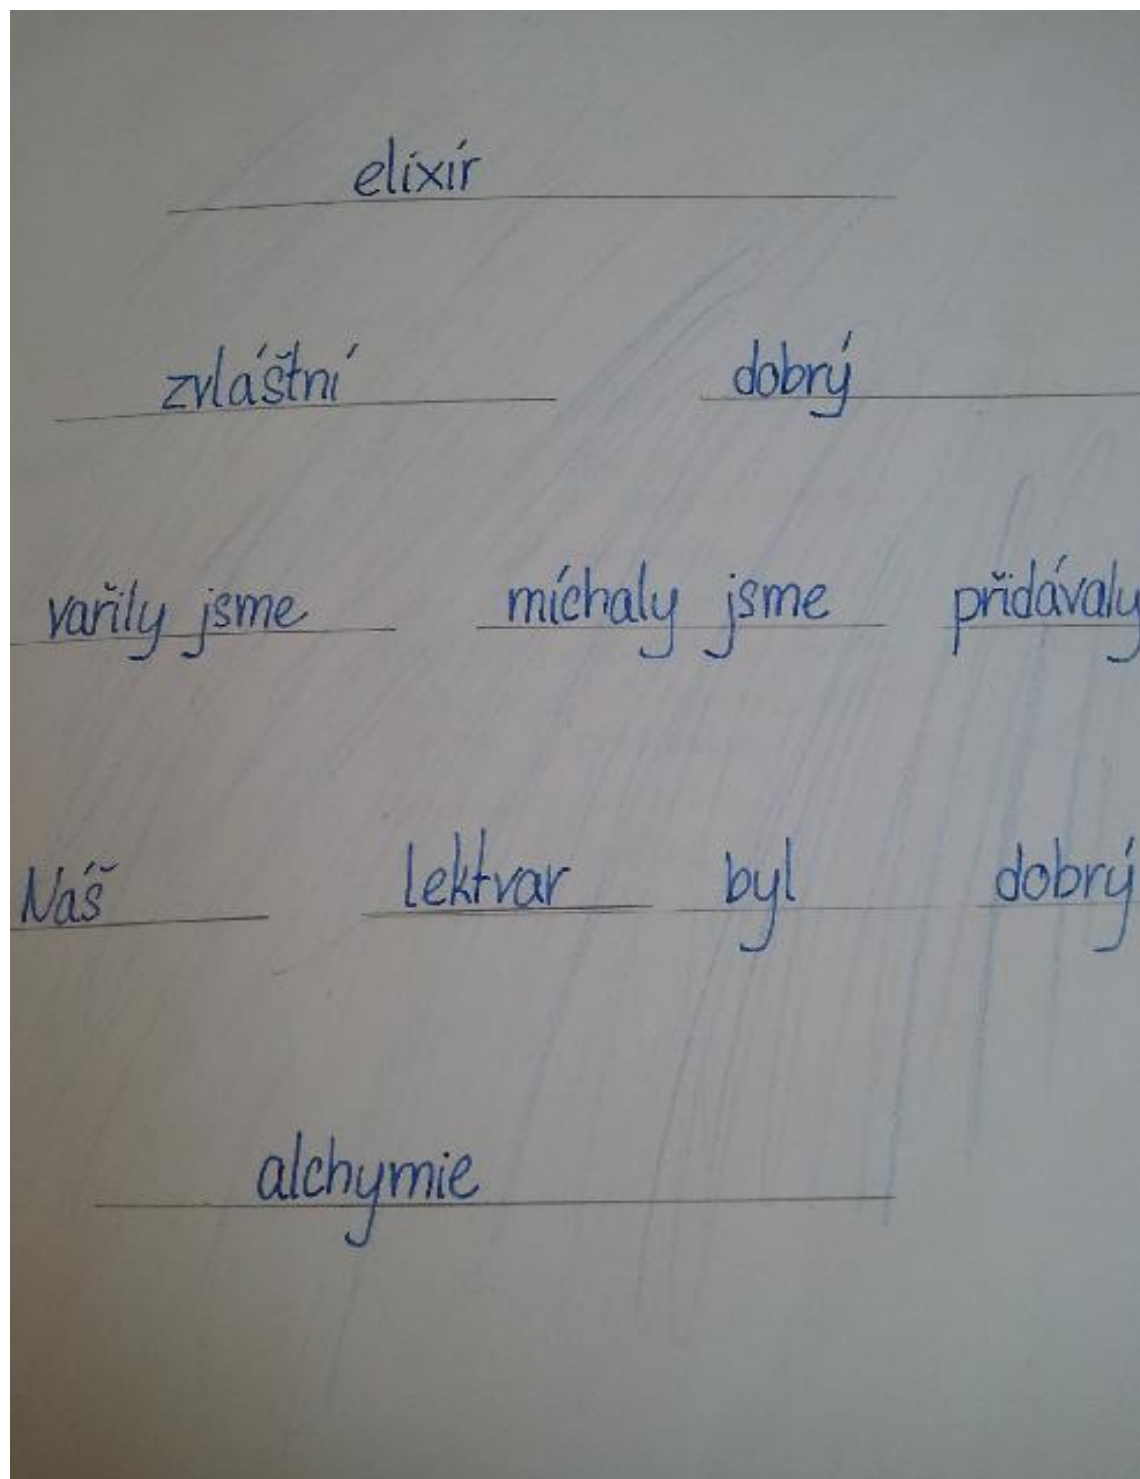 elixír
zvláštní dobrý
vařily jsme míchaly jsme přidávaly
Náš lektvar byl dobrý
alchymie